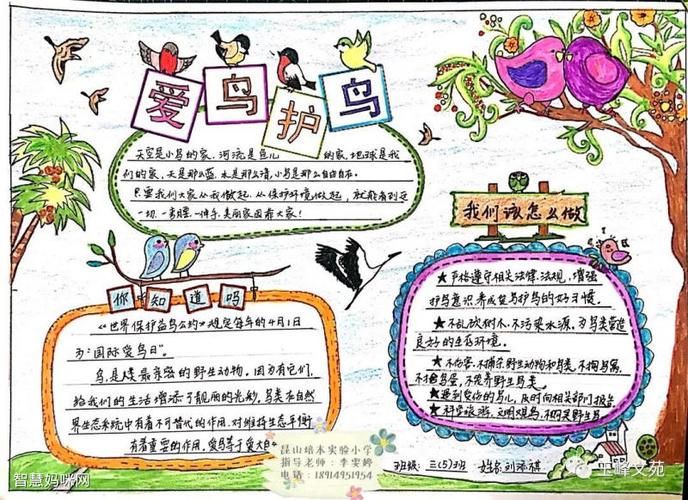 爱鸟护鸟
天空是小鸟的家，河流是鱼儿 的家，地球是我
们的家，天是那么蓝，水是那么清，小鸟是那么自由自在。
只要我们大家从我做起，从保护环境做起，就能看到这
一切，
我们该怎么做
★严格遵守相关法律、法规，增强
护鸟意识，养成爱鸟护鸟的好习惯。
★不乱砍树木，不污染水源，为鸟类营造
良好的生存环境。
★不伤害、不捕杀野生动物和鸟类，不掏鸟窝、
不捡鸟蛋，不饲养野生鸟类。
★遇到受伤的鸟儿，及时向相关部门报告
★科学旅游，文明观鸟，不惊吓野鸟
你知道吗
《世界保护益鸟公约》规定每年的4月1日
为“国际爱鸟日”。
鸟，是人类最亲密的野生动物。因为有它们，
给我们的生活增添了靓丽的光彩，鸟类在自然
界生态系统中有着不可替代的作用，对维持生态平衡
有着重要的作用。爱鸟等于爱大自
昆山培本实验小学
指导老师：李雯婷
电话：18914951954
班级：三(5)班 姓名：刘
智慧妈咪网
玉峰文苑